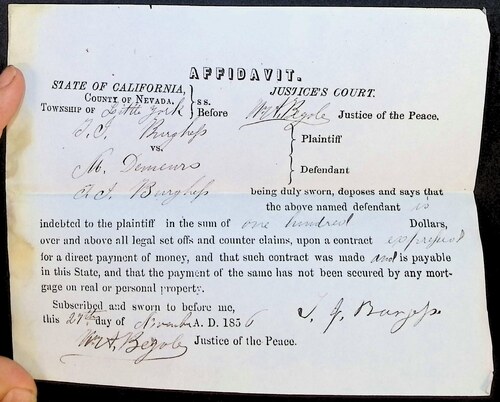 AFFIDAVIT.
STATE OF CALIFORNIA, JUSTICE'S COURT.
COUNTY OF NEVADA. ss.
TOWNSHIP OF Little York Before Wm A. Begole Justice of the Peace.
T. J. Burgess Plaintiff
vs.
M. Demeurs Defendant
T. J. Burgess being duly sworn, deposes and says that
the above named defendant is
indebted to the plaintiff in the sum of one hundred Dollars,
over and above all legal set offs and counter claims, upon a contract expressed
for a direct payment of money, and that such contract was made and is payable
in this State, and that the payment of the same has not been secured by any mort-
gage on real or personal property.
Subscribed and sworn to before me,
this 27th day of November A. D. 1856 T. J. Burgess
Wm A. Begole Justice of the Peace.